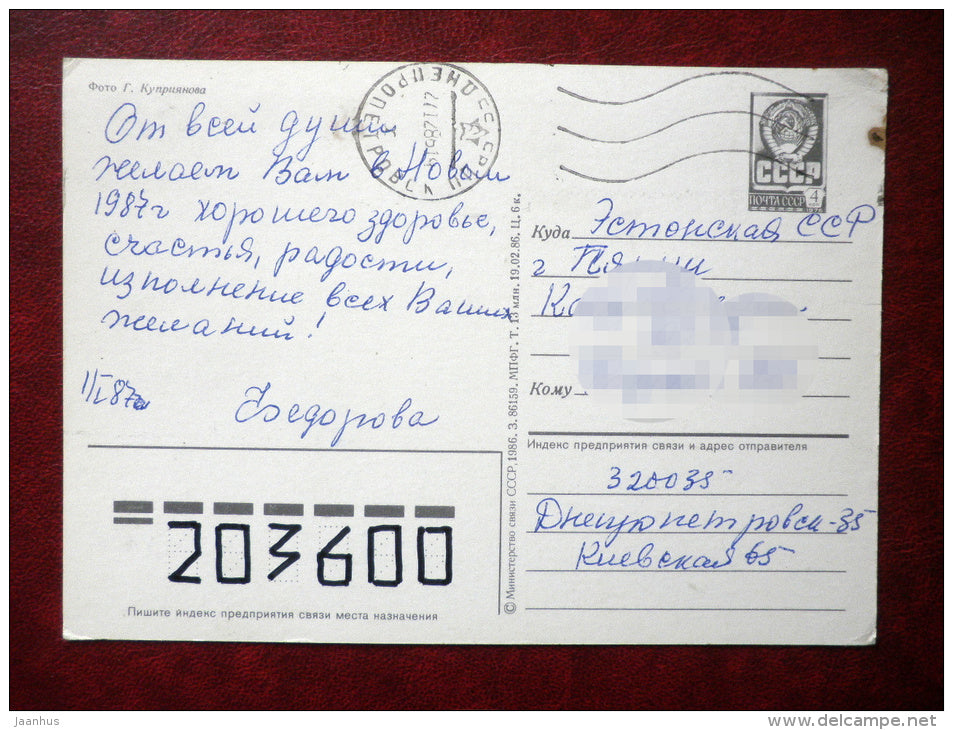 Фото Г. Куприянова
От всей души
желаем Вам в Новом
1987г хорошего здоровье,
счастья, радости,
изполнение всех Ваших
желаний!
1/I 87г
Федорова
ДНЕПРОПЕТРОВСК
СССР
ПОЧТА СССР
4
Куда Эстонская ССР
г Пярну
Кому
Индекс предприятия связи и адрес отправителя
320035
Днепропетровск-35
Киевская 65
203600
Пишите индекс предприятия связи места назначения
© Министерство связи СССР, 1986. З. 86159. МПФГ. Т. 13 млн. 19.02.86. Ц. 6 к.
jaanhus
www.delcampe.net